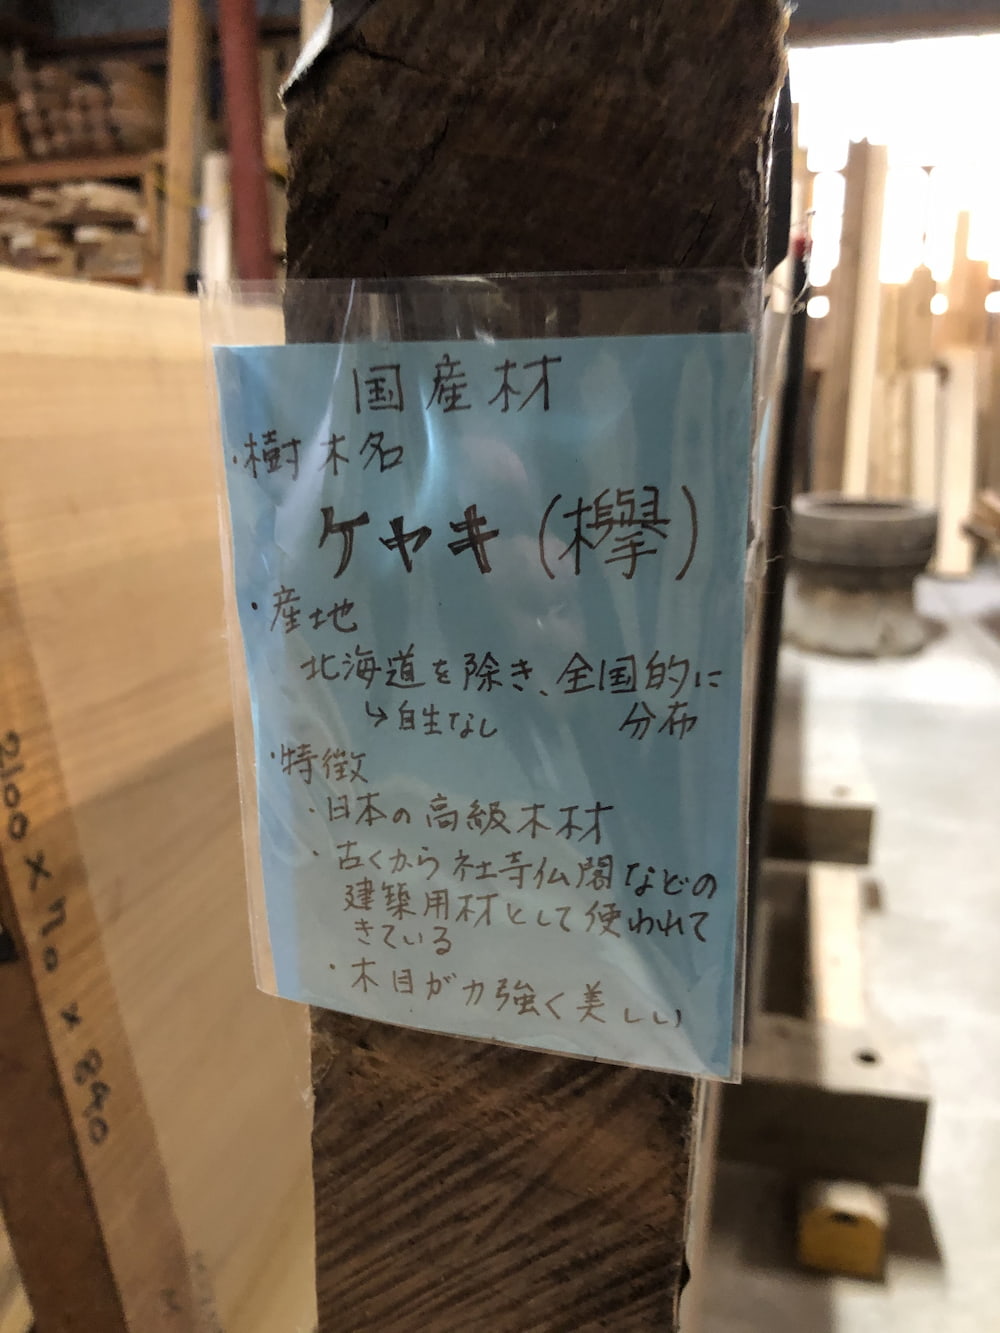 国産材
・樹木名
ケヤキ(欅)
・産地
北海道を除き、全国的に
↳自生なし 分布
・特徴
・日本の高級木材
・古くから社寺仏閣などの
建築用材として使われて
きている
・木目が力強く美しい
2100×710×890